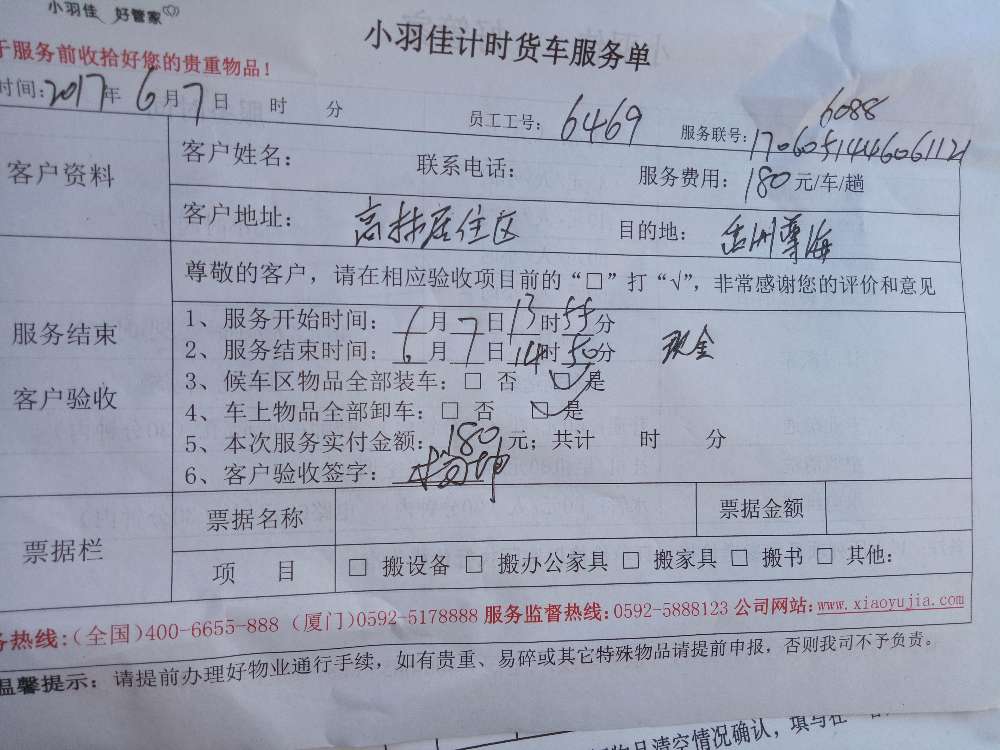 小羽佳 好管家
小羽佳计时货车服务单
于服务前收拾好您的贵重物品！
时间：2017年 6月7日 时 分 员工工号：6469 服务联号：6088
1706051444606112
客户资料 客户姓名： 联系电话： 服务费用：180元/车/趟
客户地址：高林居住区 目的地：海
尊敬的客户，请在相应验收项目前的“□”打“√”，非常感谢您的评价和意见
服务结束
客户验收
1、服务开始时间：6月7日13时55分
2、服务结束时间：6月7日14时50分 现金
3、候车区物品全部装车：□ 否 ☑ 是
4、车上物品全部卸车：□ 否 ☑ 是
5、本次服务实付金额：180元；共计 时 分
6、客户验收签字：
票据栏 票据名称 票据金额
项 目 □ 搬设备 □ 搬办公家具 □ 搬家具 □ 搬书 □ 其他：
务热线：(全国)400-6655-888 (厦门)0592-5178888 服务监督热线：0592-5888123 公司网站：www.xiaoyujia.com
温馨提示：请提前办理好物业通行手续，如有贵重、易碎或其它特殊物品请提前申报，否则我司不予负责。
物品清空情况确认，填写在